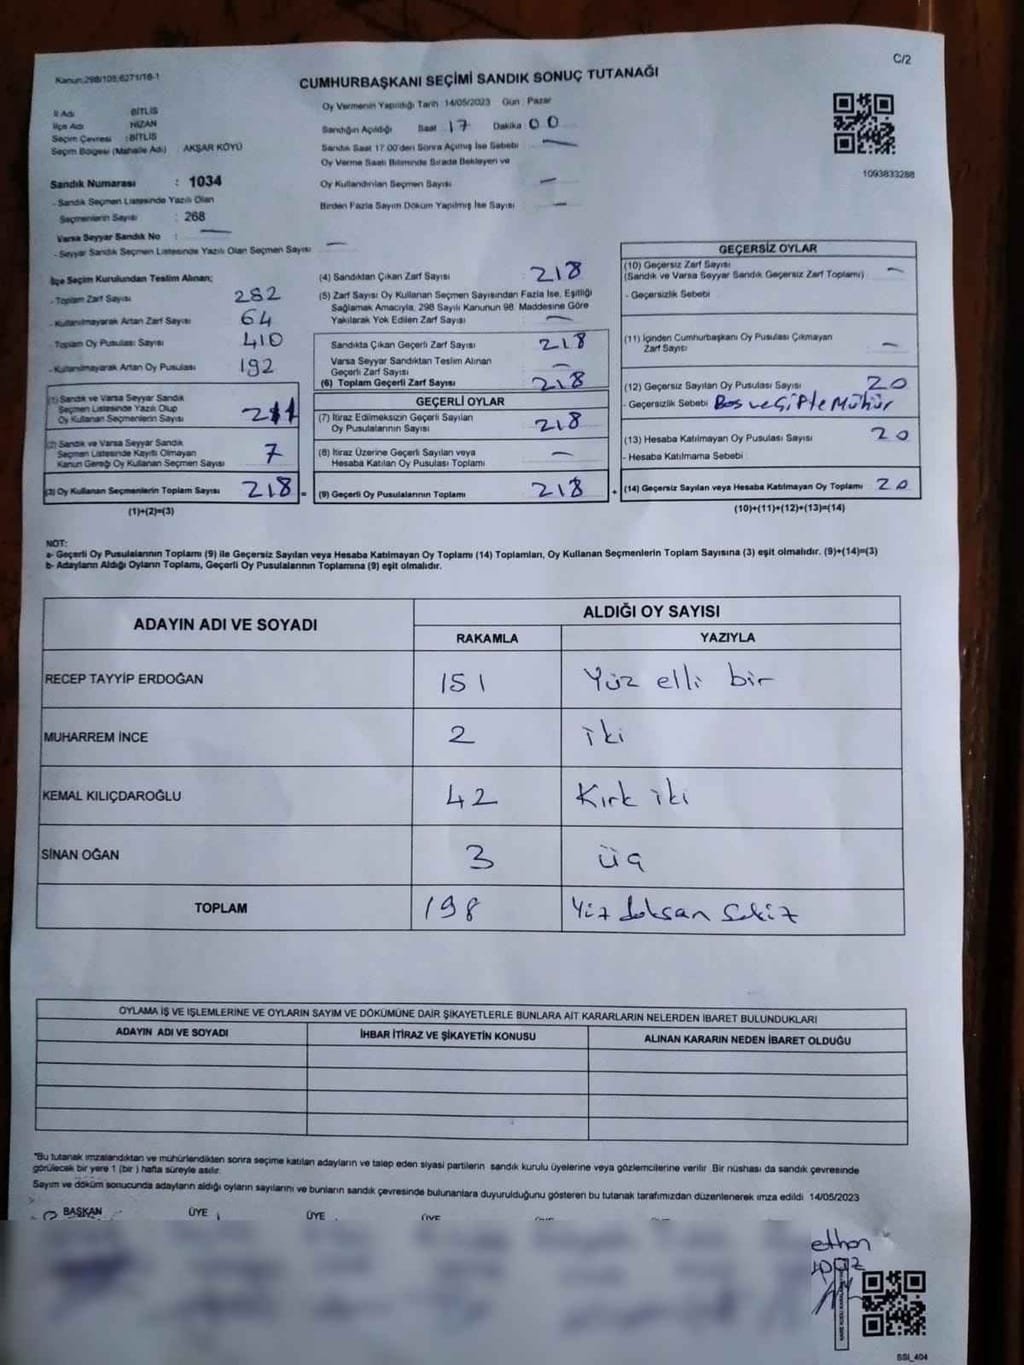 Kanun:298/105;6271/16-1
C/2
CUMHURBAŞKANI SEÇİMİ SANDIK SONUÇ TUTANAĞI
İl Adı BİTLİS
İlçe Adı HİZAN
Seçim Çevresi :BİTLİS
Seçim Bölgesi (Mahalle Adı) AKŞAR KÖYÜ
Oy Vermenin Yapıldığı Tarih 14/05/2023 Gün Pazar
Sandığın Açıldığı Saat 17 Dakika 00
Sandık Saat 17.00'den Sonra Açılmış İse Sebebi —
Oy Verme Saati Bitiminde Sırada Bekleyen ve
Oy Kullandırılan Seçmen Sayısı —
Birden Fazla Sayım Döküm Yapılmış İse Sayısı —
1093833288
Sandık Numarası : 1034
- Sandık Seçmen Listesinde Yazılı Olan
Seçmenlerin Sayısı : 268
Varsa Seyyar Sandık No : —
- Seyyar Sandık Seçmen Listesinde Yazılı Olan Seçmen Sayısı —
İlçe Seçim Kurulundan Teslim Alınan;
- Toplam Zarf Sayısı 282
- Kullanılmayarak Artan Zarf Sayısı 64
- Toplam Oy Pusulası Sayısı 410
- Kullanılmayarak Artan Oy Pusulası 192
(1) Sandık ve Varsa Seyyar Sandık
Seçmen Listesinde Yazılı Olup
Oy Kullanan Seçmenlerin Sayısı 211
(2) Sandık ve Varsa Seyyar Sandık
Seçmen Listesinde Kayıtlı Olmayan
Kanun Gereği Oy Kullanan Seçmen Sayısı 7
(3) Oy Kullanan Seçmenlerin Toplam Sayısı 218 =
(1)+(2)=(3)
(4) Sandıktan Çıkan Zarf Sayısı 218
(5) Zarf Sayısı Oy Kullanan Seçmen Sayısından Fazla İse, Eşitliği
Sağlamak Amacıyla, 298 Sayılı Kanunun 98. Maddesine Göre
Yakılarak Yok Edilen Zarf Sayısı —
Sandıkta Çıkan Geçerli Zarf Sayısı 218
Varsa Seyyar Sandıktan Teslim Alınan
Geçerli Zarf Sayısı —
(6) Toplam Geçerli Zarf Sayısı 218
GEÇERLİ OYLAR
(7) İtiraz Edilmeksizin Geçerli Sayılan
Oy Pusulalarının Sayısı 218
(8) İtiraz Üzerine Geçerli Sayılan veya
Hesaba Katılan Oy Pusulası Toplamı —
(9) Geçerli Oy Pusulalarının Toplamı 218 +
GEÇERSİZ OYLAR
(10) Geçersiz Zarf Sayısı
(Sandık ve Varsa Seyyar Sandık Geçersiz Zarf Toplamı) —
- Geçersizlik Sebebi
(11) İçinden Cumhurbaşkanı Oy Pusulası Çıkmayan
Zarf Sayısı —
(12) Geçersiz Sayılan Oy Pusulası Sayısı 20
- Geçersizlik Sebebi Bos ve Çifte Mühür
(13) Hesaba Katılmayan Oy Pusulası Sayısı 20
- Hesaba Katılmama Sebebi
(14) Geçersiz Sayılan veya Hesaba Katılmayan Oy Toplamı 20
(10)+(11)+(12)+(13)=(14)
NOT:
a- Geçerli Oy Pusulalarının Toplamı (9) ile Geçersiz Sayılan veya Hesaba Katılmayan Oy Toplamı (14) Toplamları, Oy Kullanan Seçmenlerin Toplam Sayısına (3) eşit olmalıdır. (9)+(14)=(3)
b- Adayların Aldığı Oyların Toplamı, Geçerli Oy Pusulalarının Toplamına (9) eşit olmalıdır.
ADAYIN ADI VE SOYADI
ALDIĞI OY SAYISI
RAKAMLA YAZIYLA
RECEP TAYYİP ERDOĞAN 151 Yüz elli bir
MUHARREM İNCE 2 iki
KEMAL KILIÇDAROĞLU 42 Kırk iki
SİNAN OĞAN 3 üç
TOPLAM 198 Yüz doksan sekiz
OYLAMA İŞ VE İŞLEMLERİNE VE OYLARIN SAYIM VE DÖKÜMÜNE DAİR ŞİKAYETLERLE BUNLARA AİT KARARLARIN NELERDEN İBARET BULUNDUKLARI
ADAYIN ADI VE SOYADI İHBAR İTİRAZ VE ŞİKAYETİN KONUSU ALINAN KARARIN NEDEN İBARET OLDUĞU
*Bu tutanak imzalandıktan ve mühürlendikten sonra seçime katılan adayların ve talep eden siyasi partilerin sandık kurulu üyelerine veya gözlemcilerine verilir. Bir nüshası da sandık çevresinde
görülecek bir yere 1 (bir ) hafta süreyle asılır.
Sayım ve döküm sonucunda adayların aldığı oyların sayılarını ve bunların sandık çevresinde bulunanlara duyurulduğunu gösteren bu tutanak tarafımızdan düzenlenerek imza edildi 14/05/2023
BAŞKAN ÜYE ÜYE ÜYE
SSİ_404